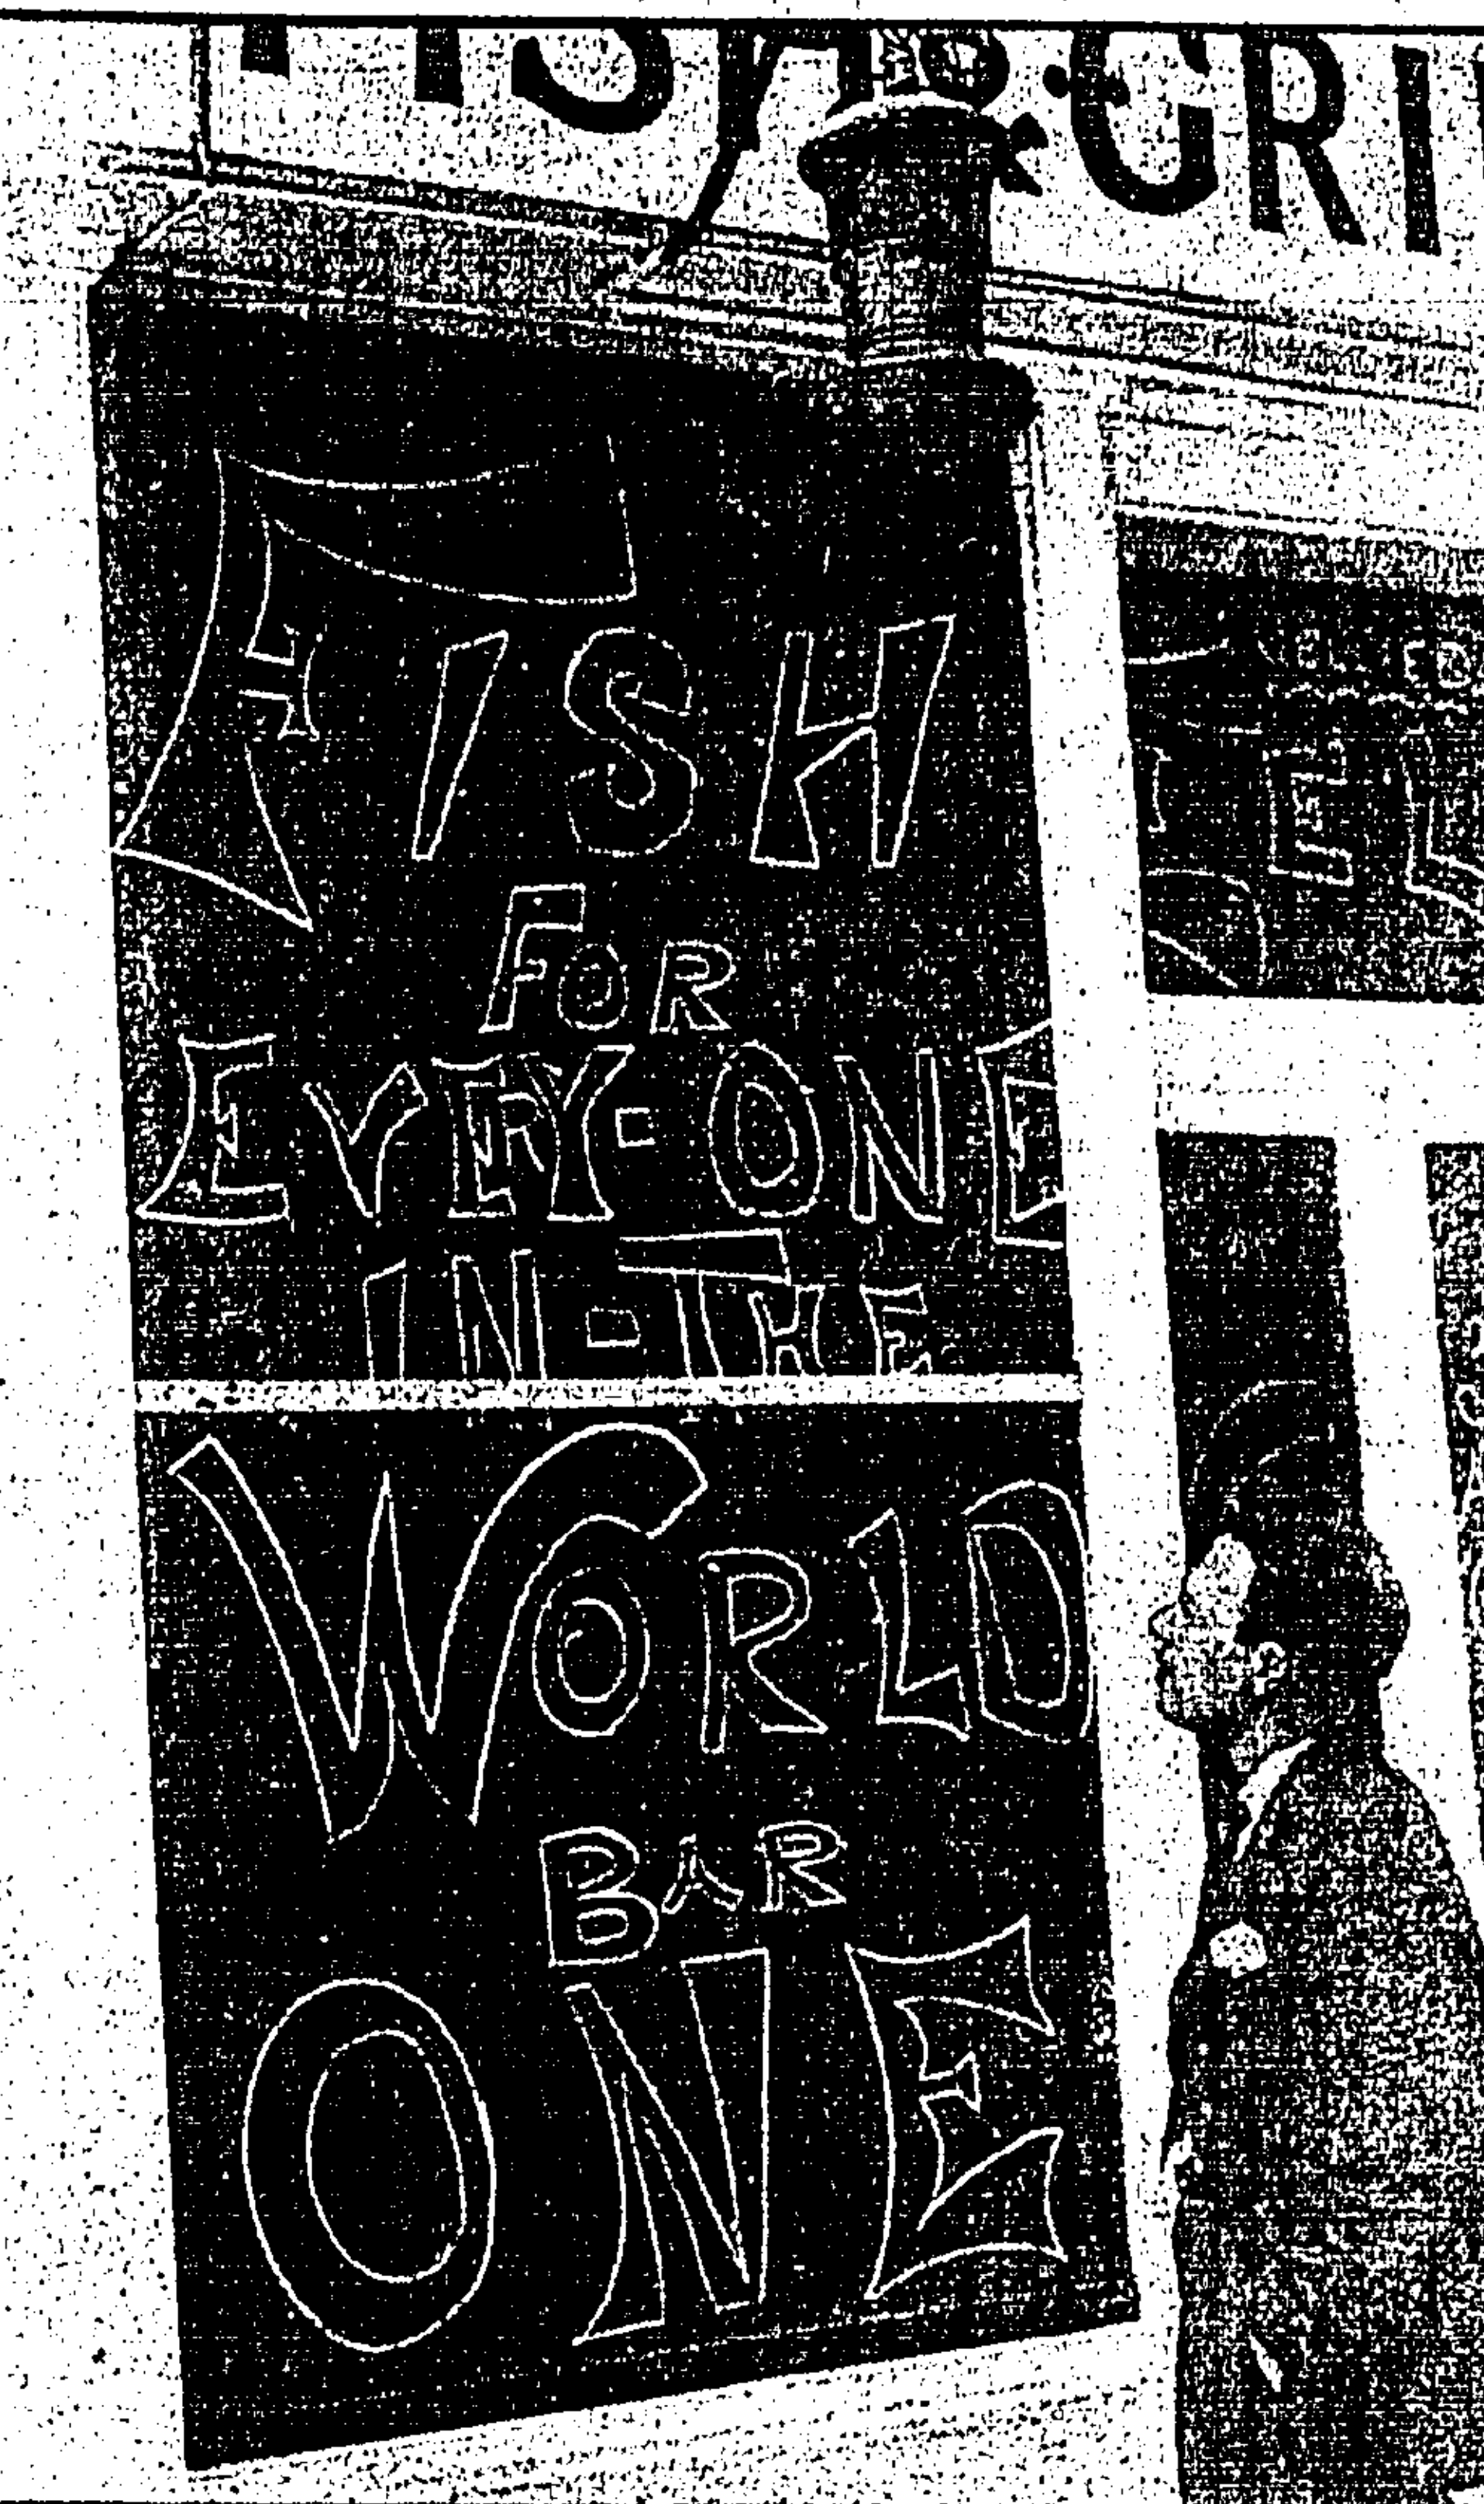 GRI
FISH
FOR
EVERY-ONE
IN-THE
WORLD
BAR
ONE